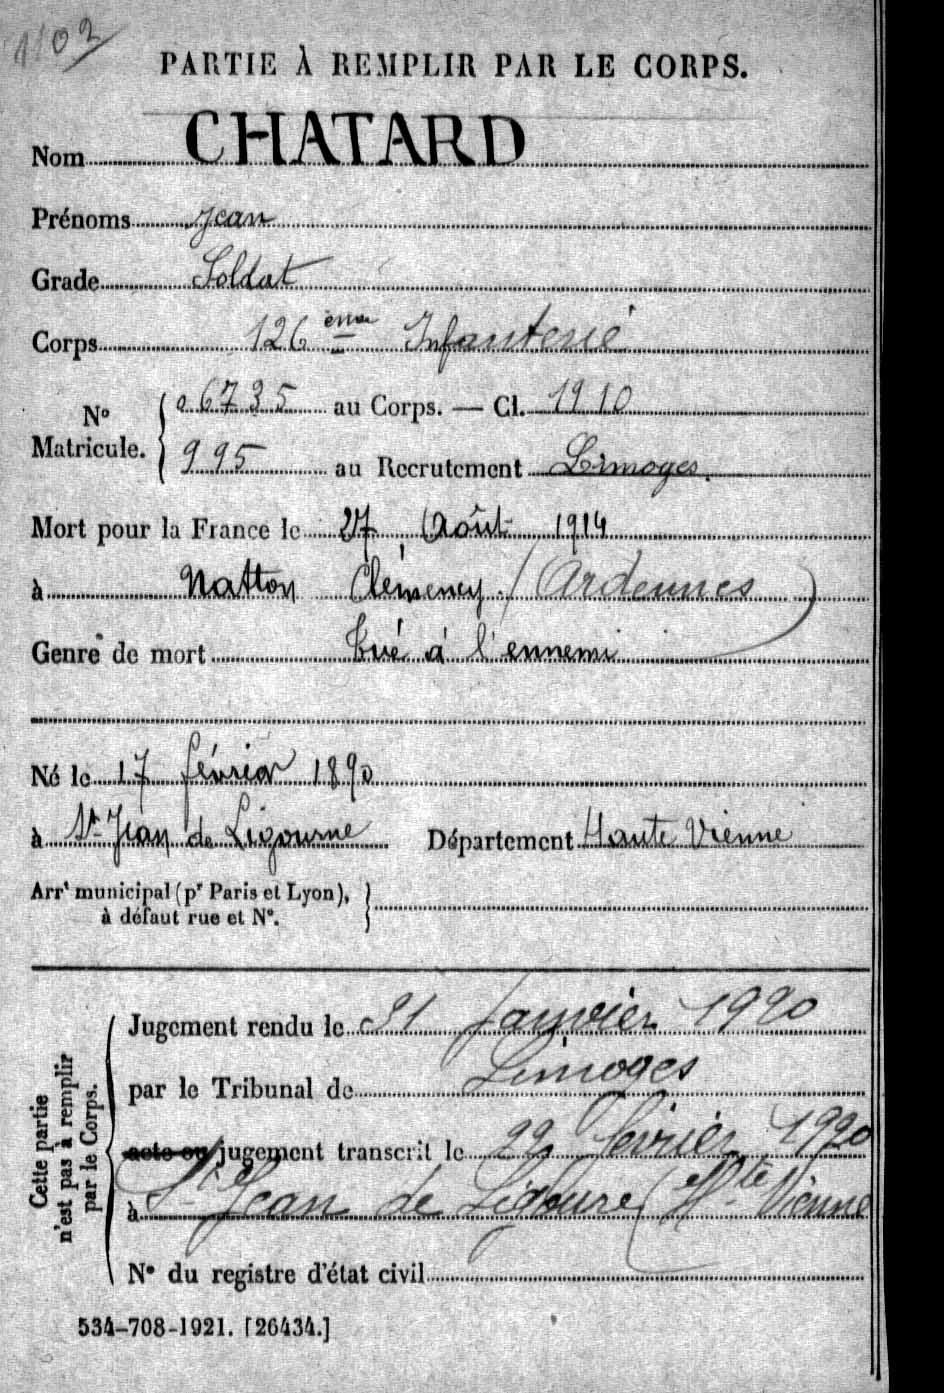 1102
PARTIE À REMPLIR PAR LE CORPS.
Nom CHATARD
Prénoms Jean
Grade Soldat
Corps 126 ème Infanterie
N° Matricule. { 06735 au Corps. — Cl. 1910
995 au Recrutement Limoges.
Mort pour la France le 27 Août 1914
à Matton Clémency (Ardennes)
Genre de mort tué à l'ennemi
Né le 17 février 1890
à St Jean de Ligourne Département Haute Vienne
Arrt municipal (pr Paris et Lyon), à défaut rue et N°. }
Cette partie n'est pas à remplir par le Corps. {
Jugement rendu le 21 Janvier 1920
par le Tribunal de Limoges
acte ou jugement transcrit le 22 février 1920
à St Jean de Ligoure (Hte Vienne
N° du registre d'état civil
534-708-1921. [26434.]